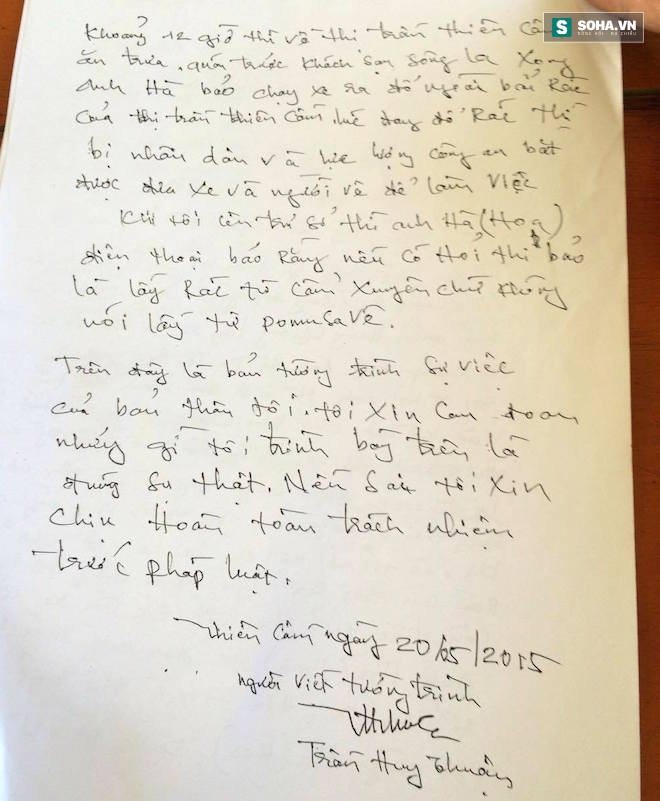 SOHA.VN
Khoảng 12 giờ thì về thị trấn thiên Cầm
ăn trưa, quán trước khách sạn sông la Xong
anh Hà bảo chạy xe ra đổ ngoài bãi Rác
của thị trấn thiên cầm, lúc đang đổ Rác thì
bị nhân dân và lực lượng công an bắt
được đưa xe và người về để làm việc
Khi tôi lên trụ sở thì anh Hà (Hoạ)
điện thoại bảo Rằng nếu có Hỏi thì bảo
là lấy Rác từ Cẩm Xuyên chứ không
nói lấy từ pomusave.
Trên đây là bản tường trình sự việc
của bản thân tôi. tôi xin Cam đoan
những gì tôi trình bày trên là
đúng sự thật. Nếu Sai tôi xin
Chịu Hoàn toàn trách nhiệm
trước pháp luật.
Thiên Cầm ngày 20/5/2015
người viết tường trình
Trần Huy Thuận